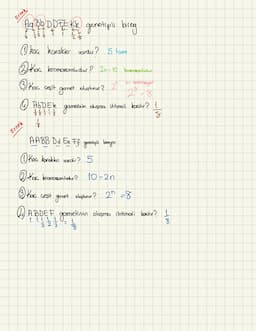 Örnek
AaBbDDFfEeKk genotipli birey
① Kaç karakter vardır? 5 tane
② Kaç kromozomludur? 2n = 10 kromozomludur
③ Kaç çeşit gamet oluşturur? 2ⁿ
2³ = 8
④ AbDEk gametinin oluşma ihtimali kaçtır? 1/8
Örnek
AABBDdEeFf genotipli bireyin
① Kaç karakter vardır? 5
② Kaç kromozomludur? 10 = 2n
③ Kaç çeşit gamet oluşturur? 2ⁿ = 8
④ ABDEF gametinin oluşma ihtimali kaçtır? 1/8
1 1 1/2 1/2 1/2 = 1/8